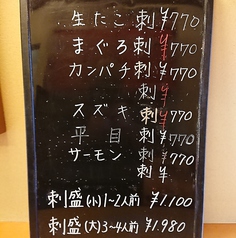 生たこ 刺 ¥770
まぐろ 刺 ¥770
カンパチ 刺 ¥770
刺 ¥
スズキ 刺 ¥770
平目 刺 ¥770
サーモン 刺 ¥770
刺 ¥
刺盛(小)1~2人前 ¥1.100
刺盛(大)3~4人前 ¥1.980